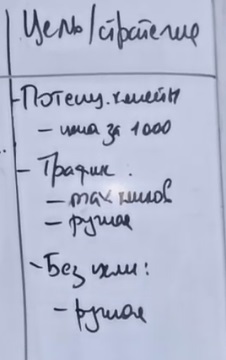 Цель/стратегия
- Потенц. клиенты
- цена за 1000
- Трафик.
- max кликов
- ручная
- Без цели:
- ручная